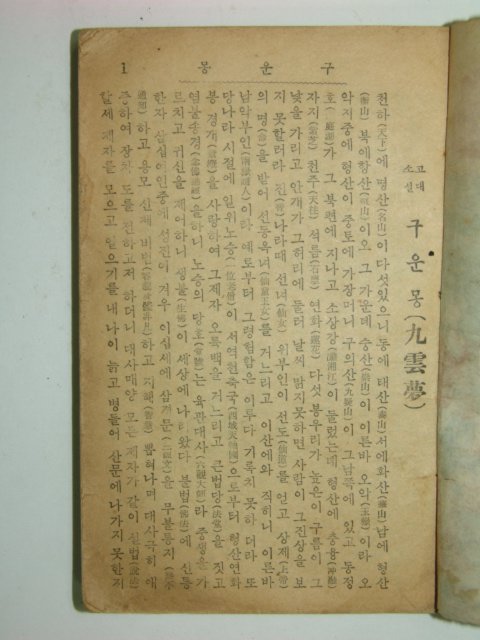 구운몽 1
고대소설 구운몽(九雲夢)
천하(天下)에 명산(名山)이 다섯있으니 동에 태산(泰山) 서에화산(華山) 남에 형산
(衡山) 북에항산(恒山)이오 그 가운데 숭산(嵩山)이 이른바 오악(五嶽)이라 오
악지중에 형산이 중토에 가장머니 구의산(九疑山)이 그남쪽에 있고 동정
호(洞庭湖)가 그 북편에 지나고 소상강(瀟湘江)이 둘렀는데 형산에 충융
자지(紫芝) 천주(天柱) 석름(石廩) 연화(蓮花) 다섯 봉우리가 높은이 구름이 그
낯을 가리고 안개가 그허리에 둘러 날씨 맑지못하면 사람이 그진상을 보
지 못할러라 진(晉)나라때 선녀(仙女) 위부인이 선도(仙道)를 얻고 상제(上帝)
의 명(命)을 받어 선동옥녀(仙童玉女)를 거느리고 이산에와 직히니 이른바
남악부인(南嶽夫人)이라 예로부터 그령험함은 이루다 기록치못하더라 또
당나라 시절에 일위노승(一位老僧)이 서역천축국(西域天竺國)으로부터 형산연화
봉 경개(景槪)를 사랑하여 그제자 오륙백을 거느리고 큰법당(法堂)을 짓고
염불송경(念佛誦經)을 하니 노승의 당호(堂號)는 육관대사(六觀大師)라 중생을 가
르치고 귀신을 제어하니 생불(生佛)이 세상에 나리왔다 불법(佛法)에 신통
한자 삼십여인중에 성진이 겨우 이십세에 삼겨문(三經文)을 무불통지(無不
通知)하고 용모 신체 비범(容貌身體非凡)하고 지혜(智慧) 뽑혀나며 대사극히 애
중하여 장차 도를 전하고저 하더니 대사매양 모든 제자가 같이 설법(說法)
할세 제자를 모으고 일으기를 내 나이 늙고 병들어 산문에나가지 못한지